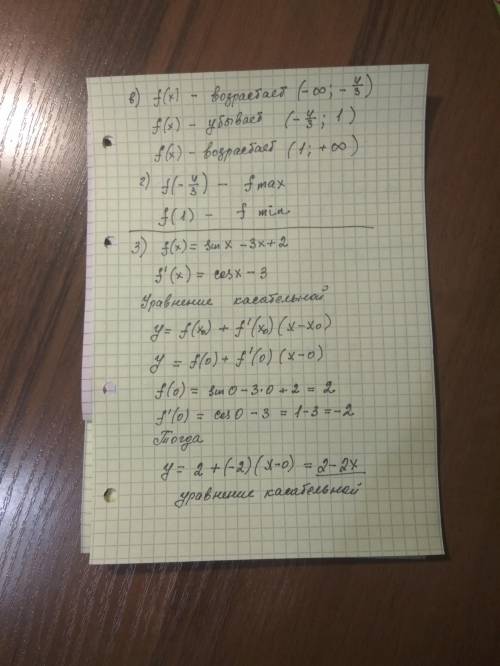 в) f(x) - возрастает (-∞; -4/3)
f(x) - убывает (-4/3; 1)
f(x) - возрастает (1; +∞)
г) f(-4/3) - f max
f(1) - f min
3) f(x) = sin x - 3x + 2
f'(x) = cos x - 3
Уравнение касательной
y = f(x₀) + f'(x₀)(x - x₀)
y = f(0) + f'(0)(x - 0)
f(0) = sin 0 - 3·0 + 2 = 2
f'(0) = cos 0 - 3 = 1 - 3 = -2
Тогда
y = 2 + (-2)(x - 0) = 2 - 2x
уравнение касательной